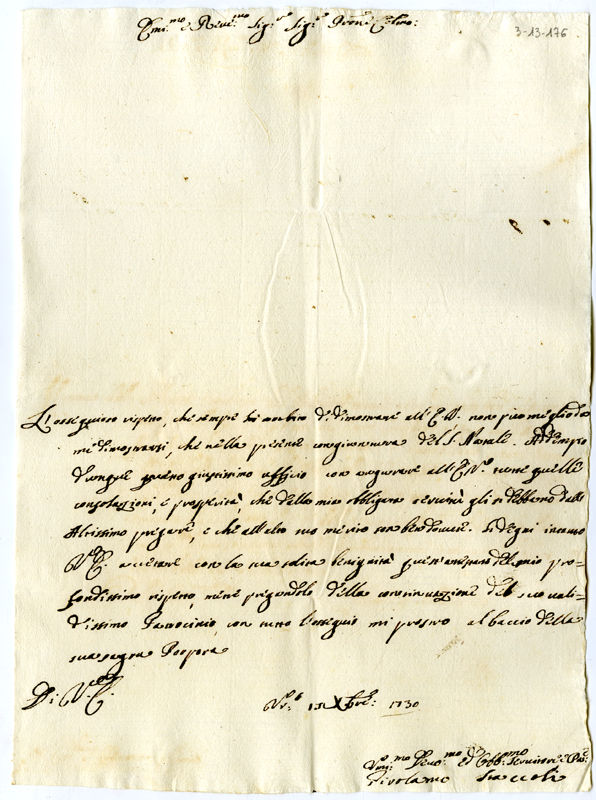 Em.mo e Rev.mo Sig.r Sig.r Prone Col.mo:
3-13-176
L'ossequioso rispetto, che sempre ho ambito di dimostrare all'E.V. non può meglio da
me dimostrarsi, che nella presente congiontura del S. Natale. Adempio
donque questo giustissimo ufficio con augurare all'E.V. tutte quelle
consolazioni, e prosperità, che dalla mia obligata servitù gli si debbono dall'
Altissimo pregare, e che all'alto suo merito son ben dovute. Si degni intanto
V.E. accettare con la sua solita benignità quest'attestato del mio pro=
fondissimo rispetto, mentre pregandolo della continuazione del suo vali=
dissimo Patrocinio, con tutto l'ossequio mi prostro al baccio della
sua sagra Porpora
Di V.E.
Xbre: 1730
Um.mo Devo.mo ed Obb.mo Servitore
Girolamo Staccoli